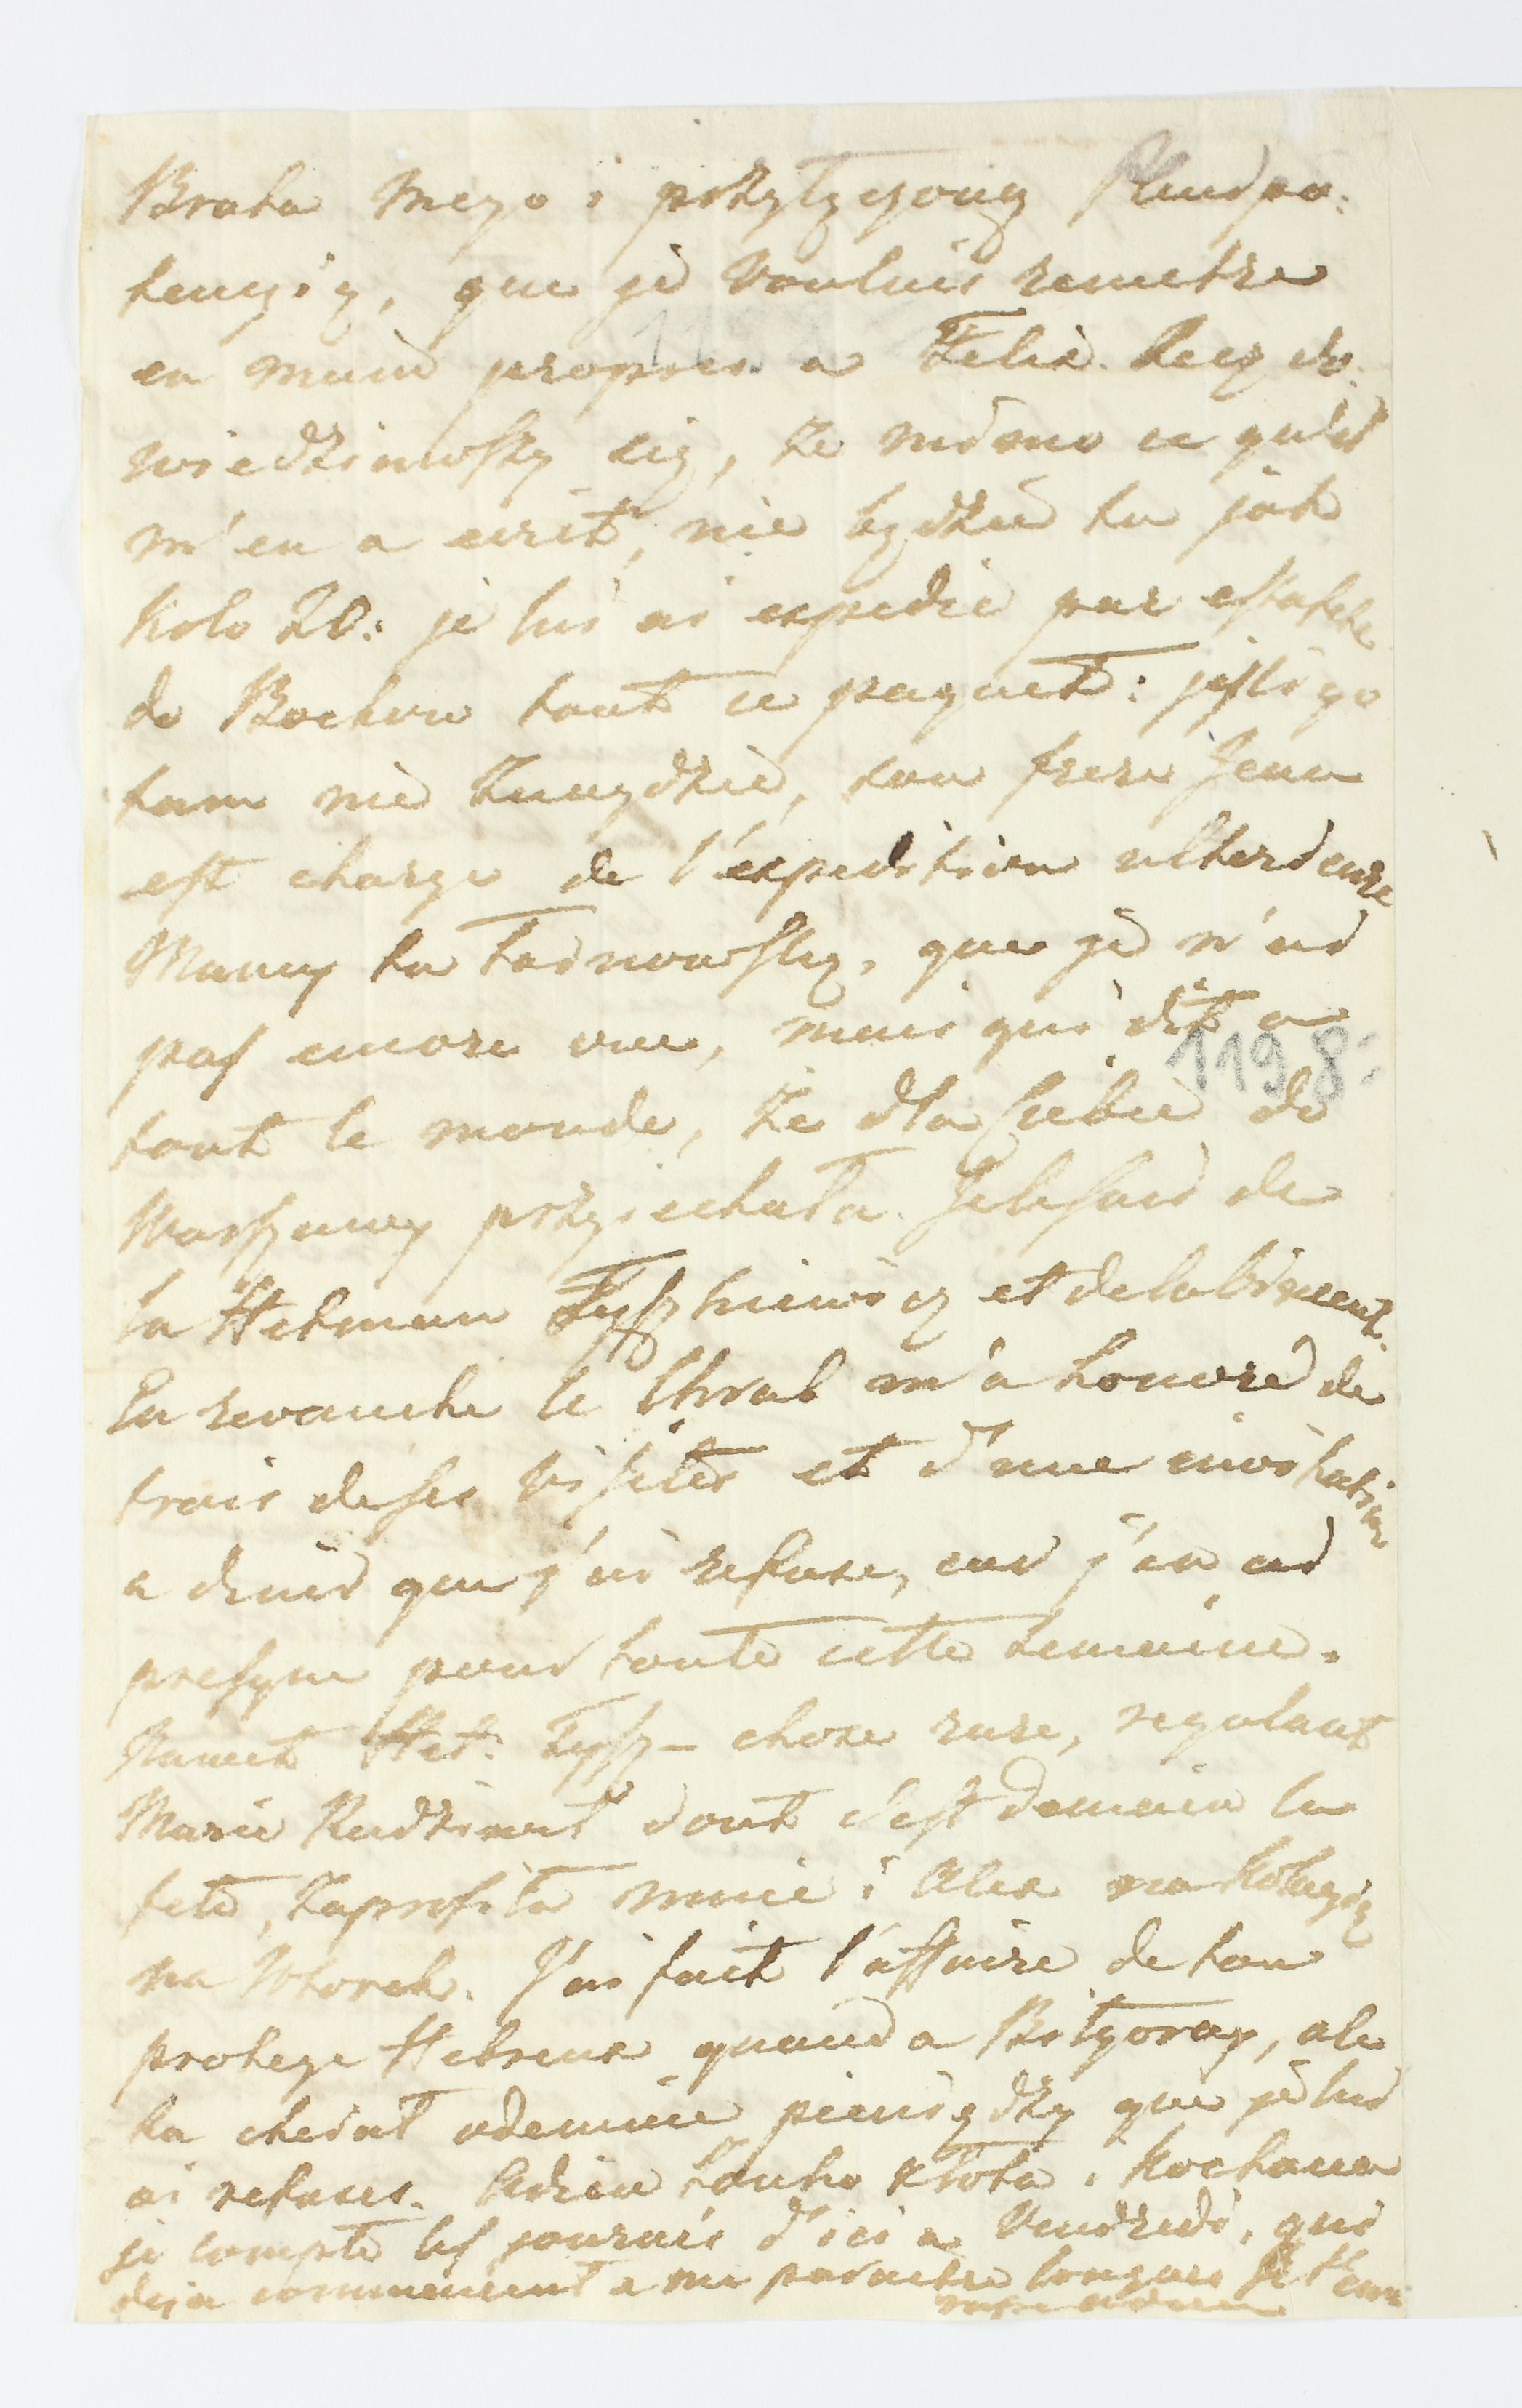 Brata mego i przyłączoną Plenipo:
tencyią, que je voulais remettre
en main propres a Felix. Lecz do:
wiedziawszy się, że mimo ce qu'il
m'en a ecrit, nie będzie tu jak
koło 20: je lui ai expedié par estafete
do Bochow tout ce paquet: jesli go
tam nie znaydzie, ton frere Jean
est charge de l'expedition ulterieure
Mamy tu Tarnowską, que je n'ai
pas encore vue, mais qui dit a
119 8:
tout le monde, że dla Ciebie do
Warszawy przyiechała. Jelesaid de
la Hetman Tyszkiewicz et de la
En revanche le Chrab m'a honoré de
trois de ses visites et d'une invitation
a diner que j'ai refuse, car j'en ai
presque pour toute cette semaine.
Nawet Het: Tysz– chose rare, regalant
Marie Rudzinet dont c'est demain la
fete, zaprosiła mnie i Alex na kolacyią
na Wtorek. J'ai fait l'affaire de ton
protege Hebreux quand a Biłgoray, ale
ta chciał odemnie pieniędzy que je lui
ai refuses. Adieu Zonko złota i kochana
je compte les journeés d'ici a Vendredi, qui
deja commencent a me paraitre longues